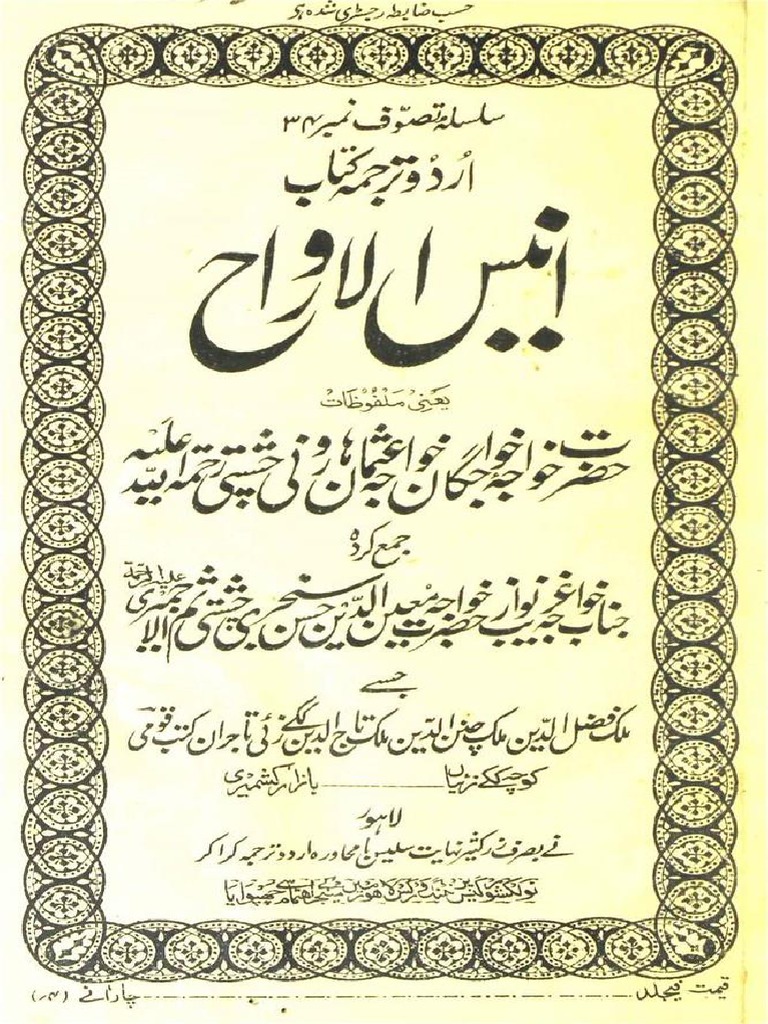 حسب ضابطہ رجسٹری شدہ ہو
سلسلۂ تصوّف نمبر ۳۴
اُردو ترجمہ کتاب
انیس الارواح
یعنی ملفوظات
حضرت خواجۂ خواجگان خواجہ عثمان ہارونی چشتی رحمۃ اللہ علیہ
جمع کردہ
جناب خواجہ غریب نواز حضرت خواجہ معین الدّین حسن سنجری چشتی ثم الاجمیری علیہ الرحمۃ
جسے
ملک فضل الدّین ملک چنن الدّین ملک تاج الدین ککے زئی تاجران کتب قومی
کوچہ ککے زئیاں بازار کشمیری
لاہور
نے بصرف زر کثیر نہایت سلیس با محاورہ اردو ترجمہ کرا کر
نولکشور پرنٹنگ ورکس لاہور میں اہتمام سے چھپوایا
قیمت فیجلد چار آنے (۴؍)